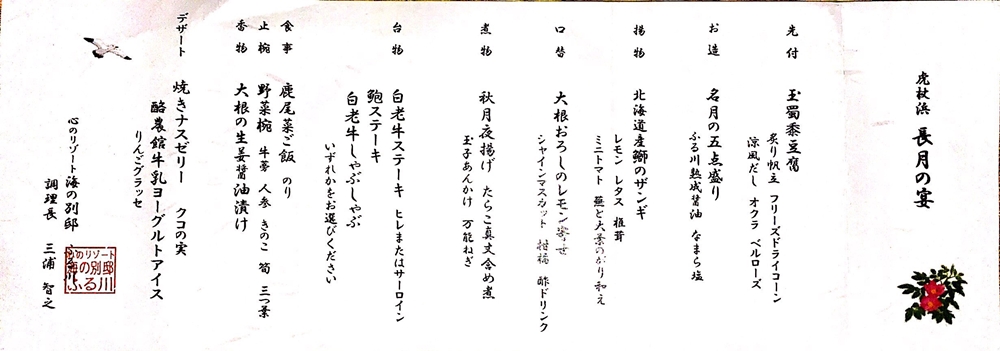 虎杖浜 長月の宴
先付 玉蜀黍豆腐
炙り帆立 フリーズドライコーン
涼風だし オクラ ベルローズ
お造 名月の五点盛り
ふる川熟成醤油 なまら塩
揚物 北海道産鰤のザンギ
レモン レタス 椎茸
ミニトマト 蕪と大葉のがり和え
口替 大根おろしのレモン寄せ
シャインマスカット 柑橘 酢ドリンク
煮物 秋月夜揚げ たらこ真丈含め煮
玉子あんかけ 万能ねぎ
台物 白老牛ステーキ ヒレまたはサーロイン
鮑ステーキ
白老牛しゃぶしゃぶ
いずれかをお選びください
食事 鹿尾菜ご飯 のり
止椀 野菜椀 牛蒡 人参 きのこ 筍 三つ葉
香物 大根の生姜醤油漬け
デザート 焼きナスゼリー クコの実
酪農館牛乳ヨーグルトアイス
りんごグラッセ
心のリゾート 海の別邸 ふる川
調理長 三浦 智之
心のリゾート
海の別邸
ふる川